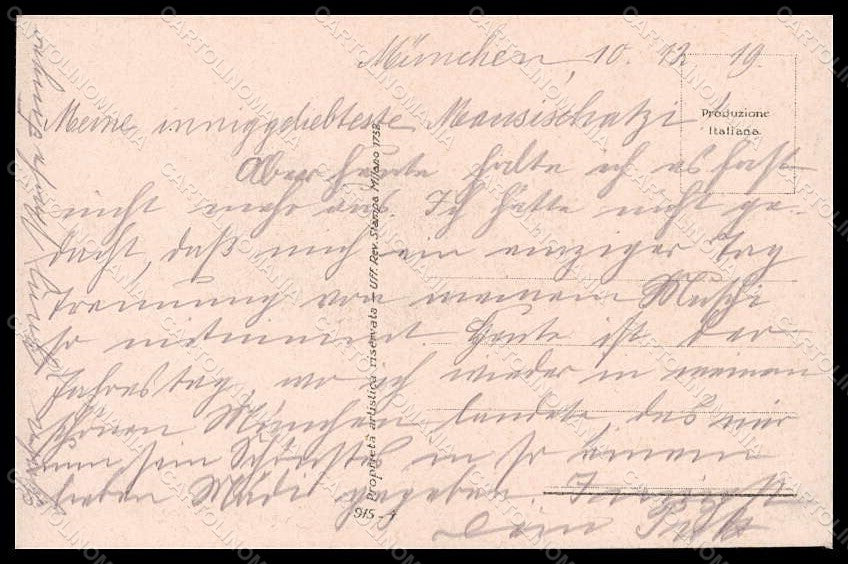 München, 10. 12. 19.
Meine inniggeliebteste Mausischatzi!
Aber heute halte ich es fast
nicht mehr aus. Ich hätte nicht ge-
dacht, daß mich ein einziger Tag
Trennung von meinem Muschi
so mitnimmt. Heute ist der
Jahrestag, wo ich wieder in meinem
schönen München landete, das mir
nun sein Schönstes in so einem
lieben Mädi gegeben. Innigst
Dein
Produzione
Italiana
Proprietà artistica riservata - Uff. Rev. Stampa Milano 1732
915-4
CARTOLINOMANIA